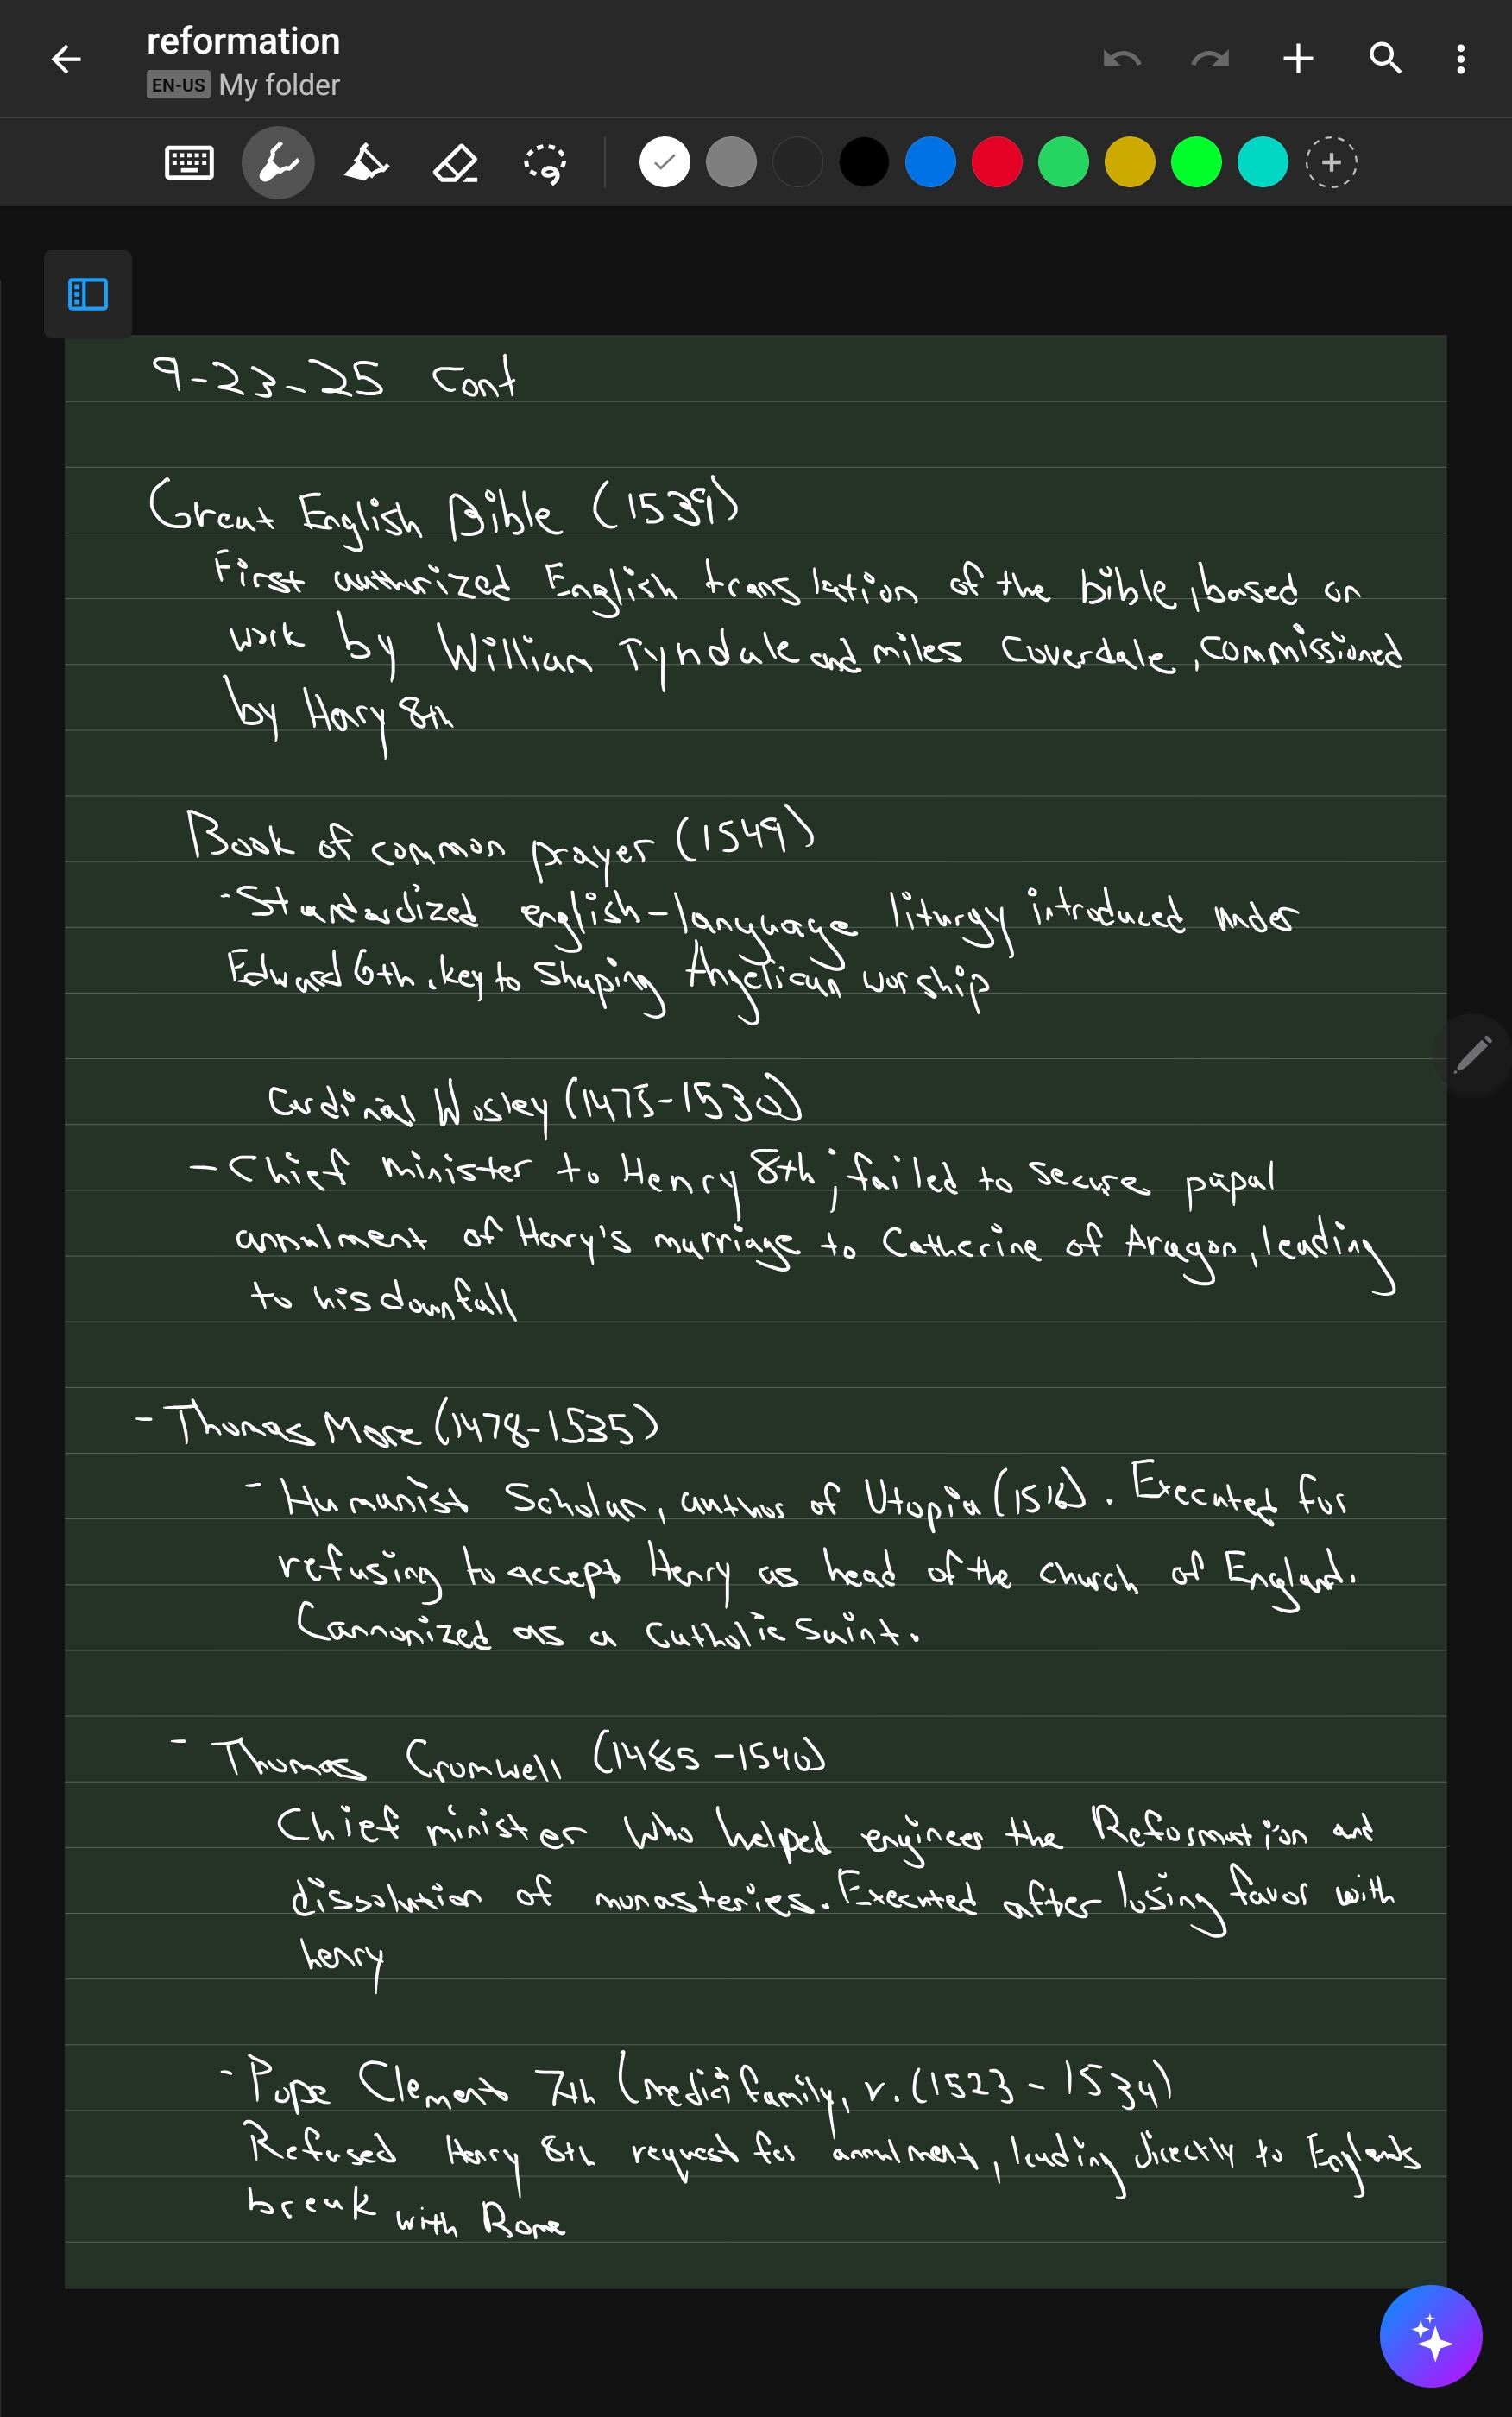 reformation
EN-US My folder
9-23-25 Cont
Great English Bible (1539)
First authorized English translation of the bible, based on
work by William Tyndale and miles Coverdale, Commissioned
by Henry 8th
Book of common prayer (1549)
-Standardized english-language liturgy introduced under
Edward 6th. key to shaping Angelican worship
Cardinal Wosley (1475-1530)
- Chief minister to Henry 8th; failed to secure papal
annulment of Henry's marriage to Catherine of Aragon, leading
to his downfall
- Thomas More (1478-1535)
- Humanist Scholar, author of Utopia (1516). Executed for
refusing to accept Henry as head of the church of England.
Cannonized as a Catholic Saint.
- Thomas Cromwell (1485-1540)
Chief minister who helped engineer the Reformation and
dissolution of monasteries. Executed after losing favor with
henry
- Pope Clement 7th (medici family, r. (1523-1534)
Refused Henry 8th request for annulment, leading directly to Englands
break with Rome